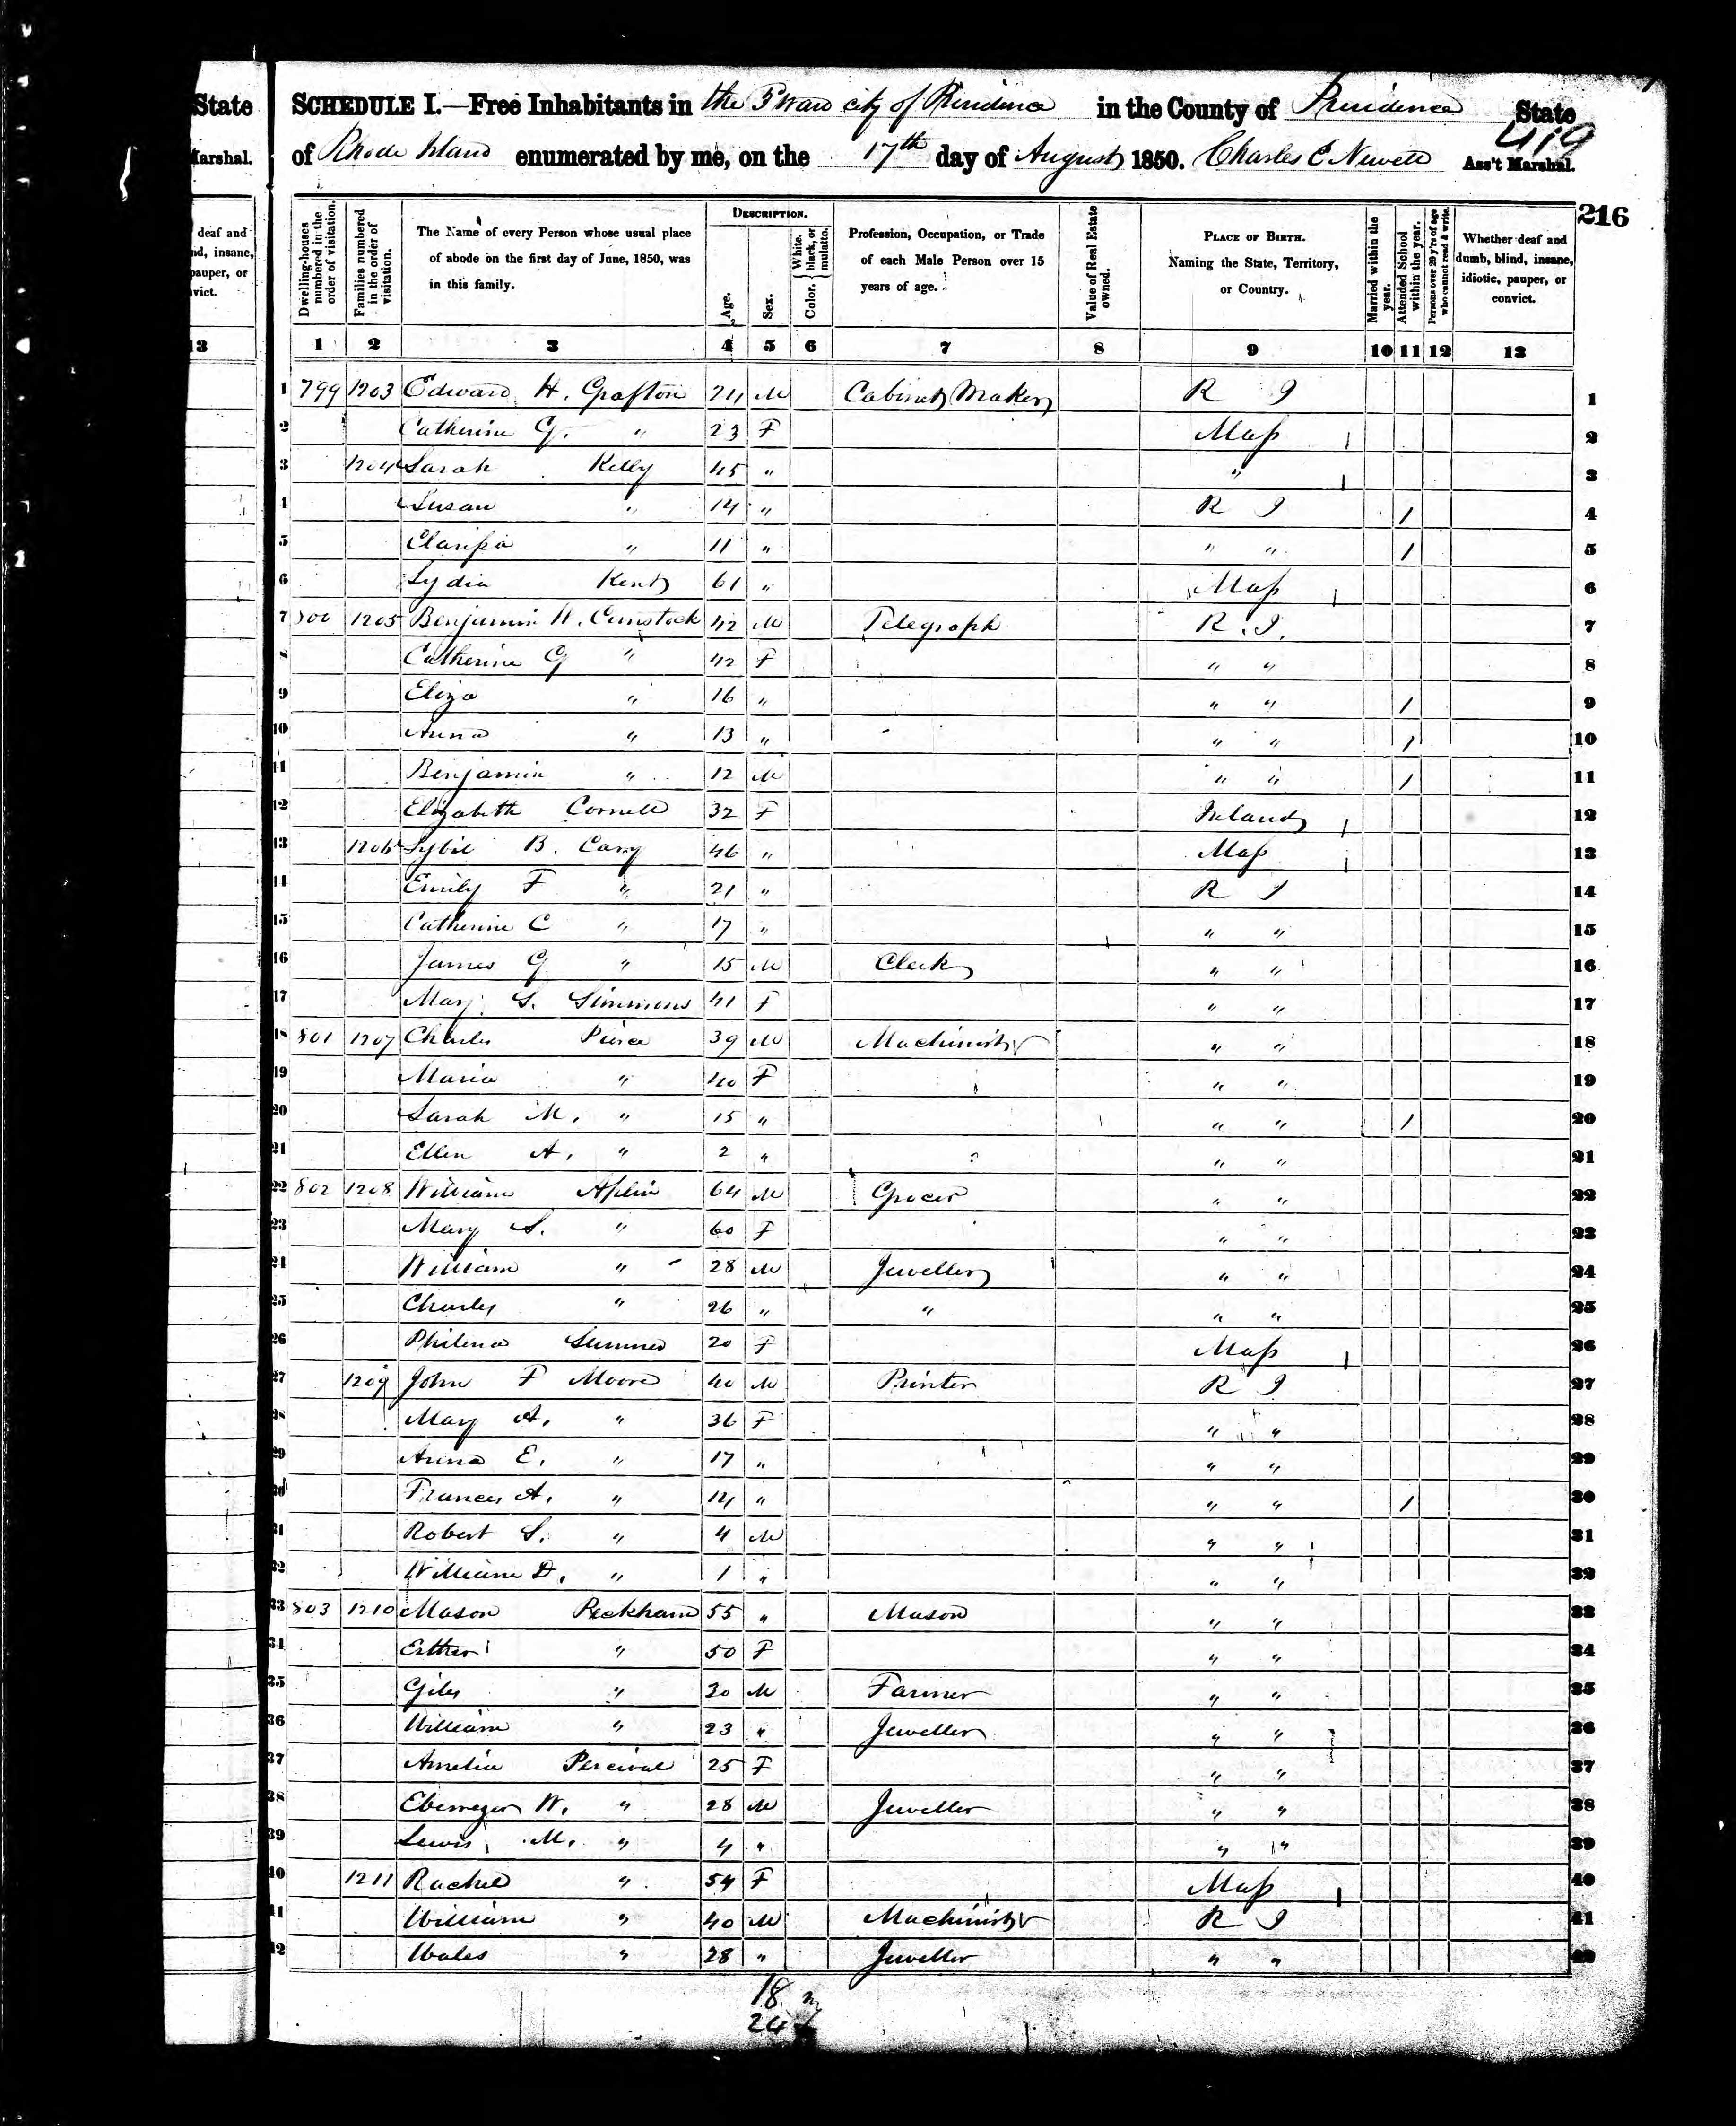 State
Marshal.
deaf and
nd, insane,
pauper, or
vict.
13
SCHEDULE I.—Free Inhabitants in the 5 Ward city of Providence in the County of Providence State
419
of Rhode Island enumerated by me, on the 17th day of August 1850. Charles E Newell Ass't Marshal.
216
Dwelling-houses numbered in the order of visitation.
Families numbered in the order of visitation.
The Name of every Person whose usual place of abode on the first day of June, 1850, was in this family.
DESCRIPTION.
Age.
Sex.
Color. { White, black, or mulatto.
Profession, Occupation, or Trade of each Male Person over 15 years of age.
Value of Real Estate owned.
PLACE OF BIRTH. Naming the State, Territory, or Country.
Married within the year.
Attended School within the year.
Persons over 20 y'rs of age who cannot read & write.
Whether deaf and dumb, blind, insane, idiotic, pauper, or convict.
1 2 3 4 5 6 7 8 9 10 11 12 13
1 799 1203 Edward H. Grafton 24 M Cabinet Maker R I 1
2 Catherine G. " 23 F Mass 2
3 1204 Sarah Kelly 45 " " 3
4 Susan " 14 " R I 1 4
5 Clarissa " 11 " " " 1 5
6 Lydia Kent 61 " Mass 6
7 800 1205 Benjamin W. Comstock 42 M Telegraph R. I. 7
8 Catherine G " 42 F " " 8
9 Eliza " 16 " " " 1 9
10 Anna " 13 " " " 1 10
11 Benjamin " 12 M " " 1 11
12 Elizabeth Cornell 32 F Ireland 12
13 1206 Sybil B. Cary 46 " Mass 13
14 Emily F " 21 " R I 14
15 Catherine C " 17 " " " 15
16 James G " 15 M Clerk " " 16
17 Mary G. Simmons 41 F " " 17
18 801 1207 Charles Pierce 39 M Machinist " " 18
19 Maria " 40 F " " 19
20 Sarah M. " 15 " " " 1 20
21 Ellen A. " 2 " " " 21
22 802 1208 William Aplin 64 M Grocer " " 22
23 Mary S. " 60 F " " 23
24 William " 28 M Jeweller " " 24
25 Charles " 26 " " " " 25
26 Philena Sumner 20 F Mass 26
27 1209 John F Moore 40 M Printer R I 27
28 Mary A. " 36 F " " 28
29 Anna E. " 17 " " " 29
30 Frances A. " 14 " " " 1 30
31 Robert S. " 4 M " " 31
32 William D. " 1 " " " 32
33 803 1210 Mason Peckham 55 " Mason " " 33
34 Esther " 50 F " " 34
35 Giles " 20 M Farmer " " 35
36 William " 23 " Jeweller " " 36
37 Amelia Percival 25 F " " 37
38 Ebenezer W. " 28 M Jeweller " " 38
39 Lewis M. " 4 " " " 39
40 1211 Rachel " 54 F Mass 40
41 William " 40 M Machinist R I 41
42 Wales " 28 " Jeweller " " 42
18 m
24 f